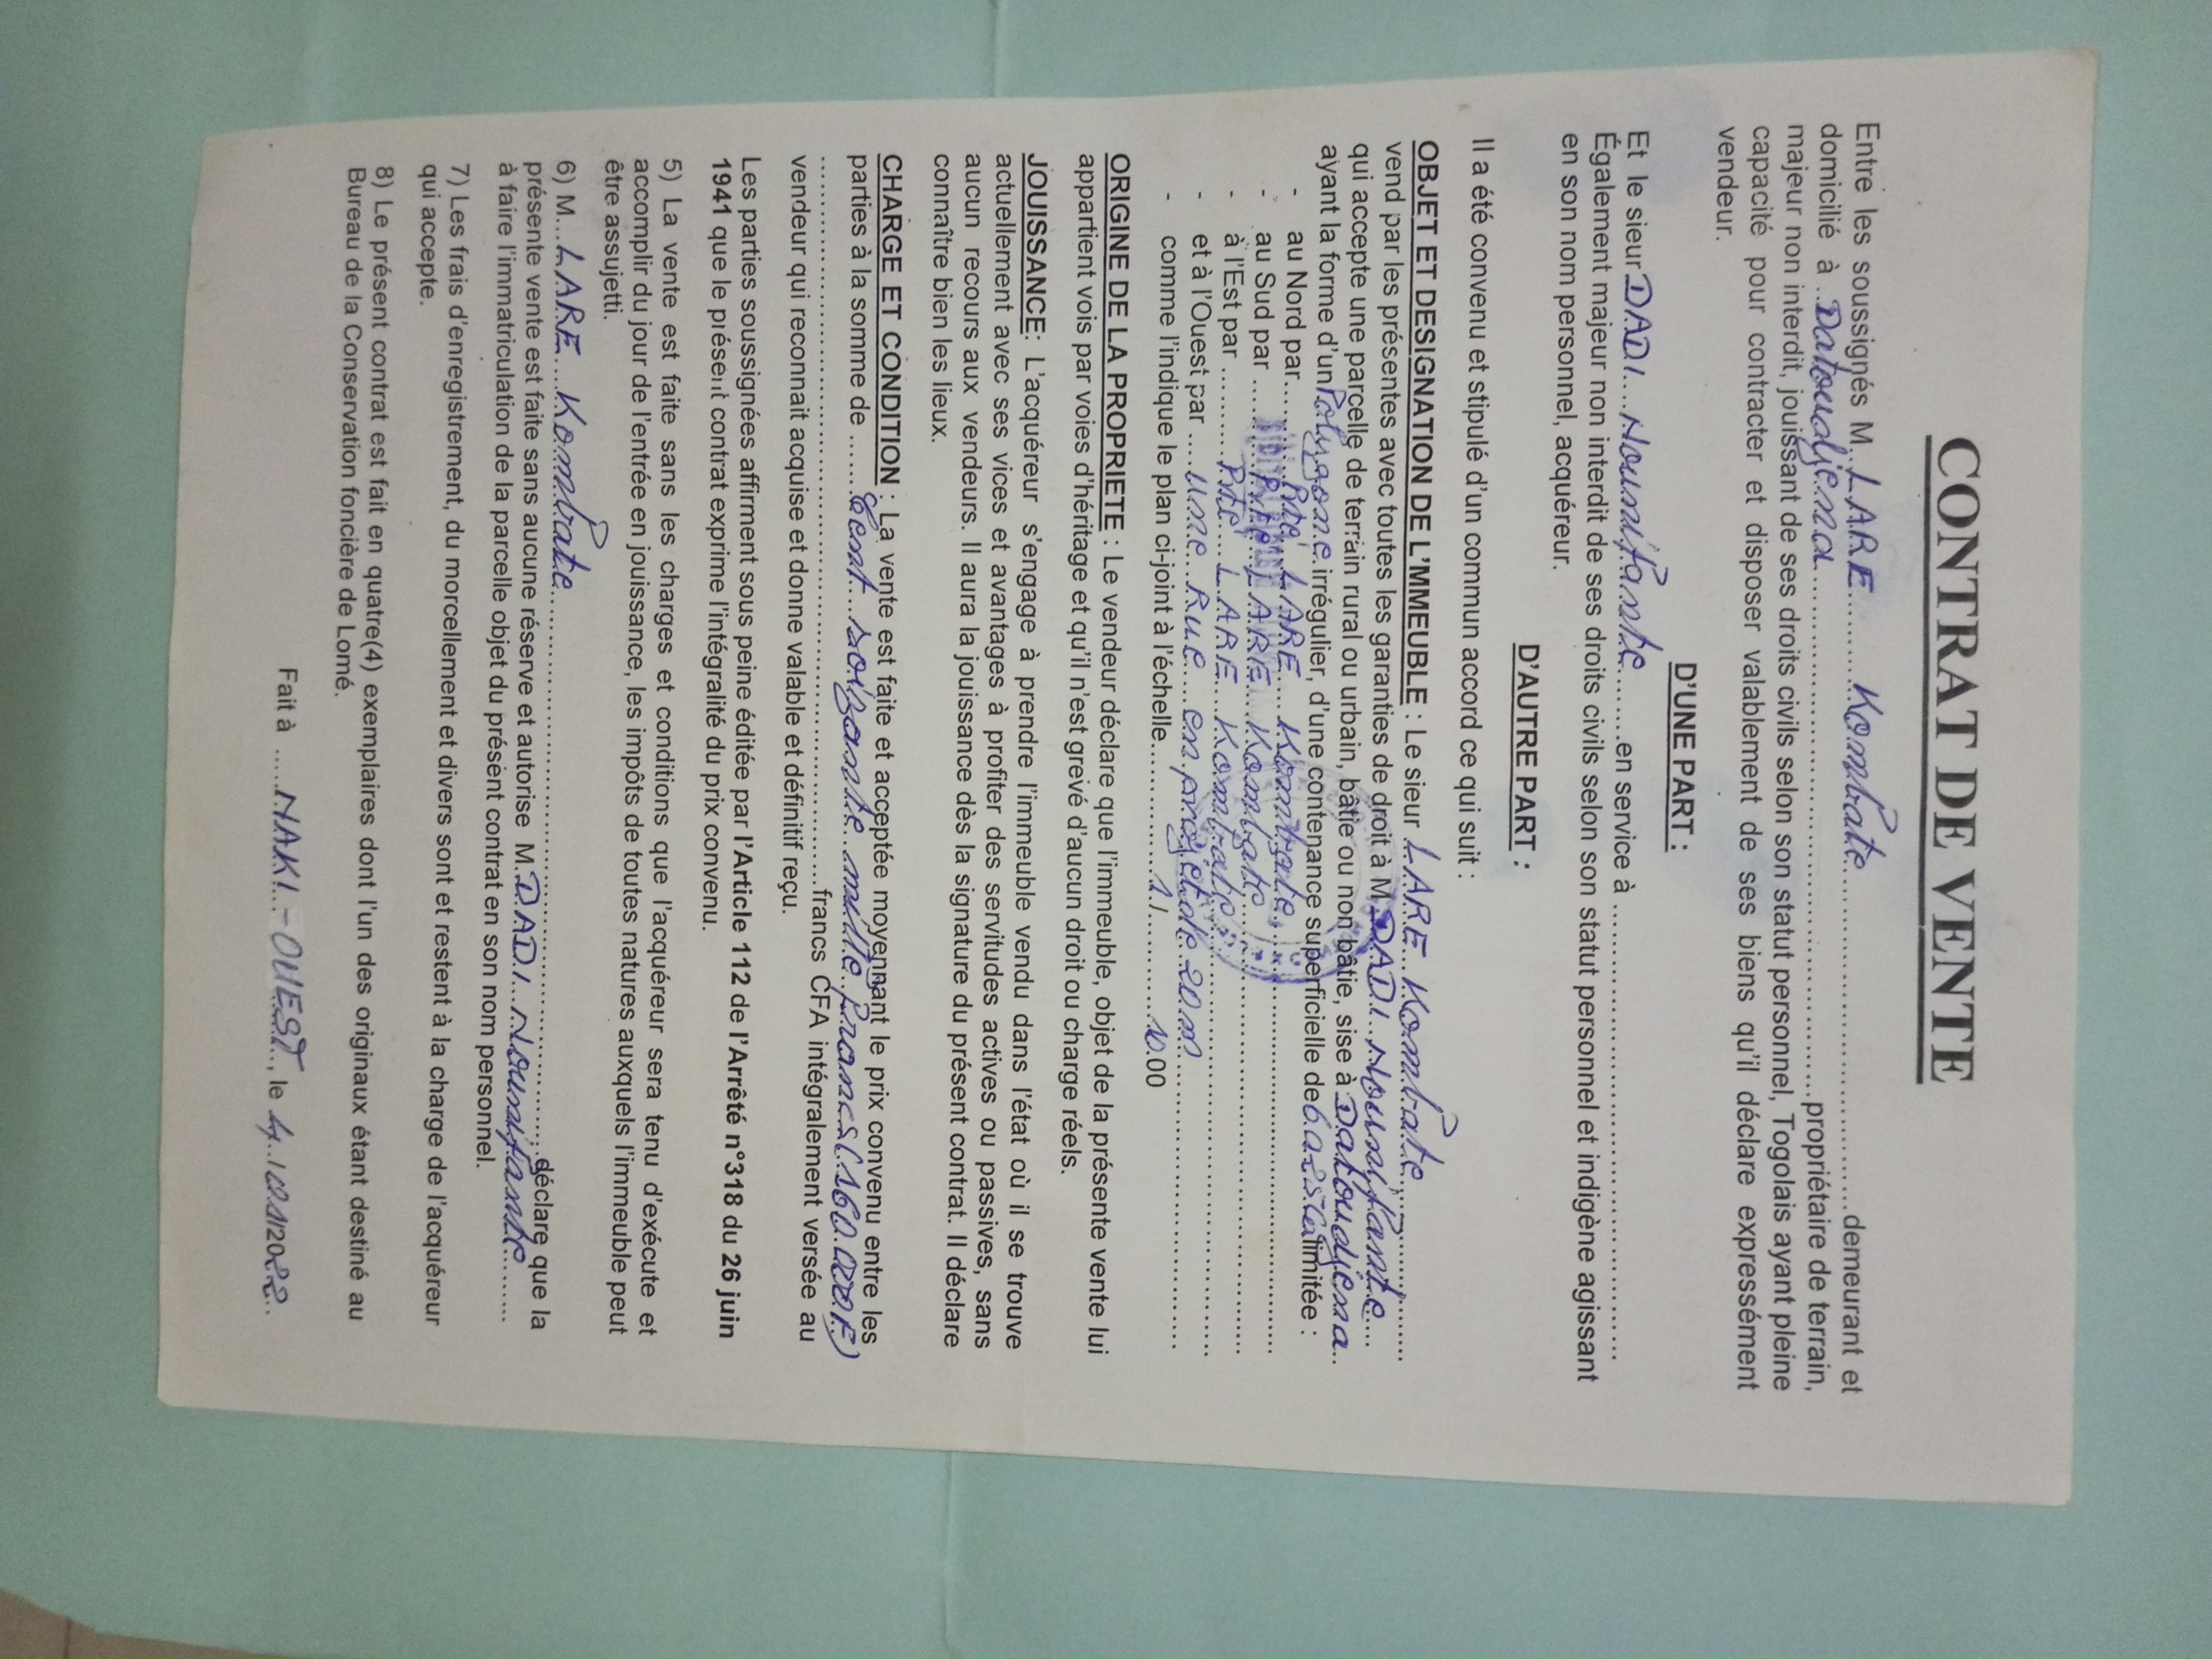 CONTRAT DE VENTE
Entre les soussignés M. LARE ........ Kombate ........................ demeurant et
domicilié à .. Datoudjena ........................................ propriétaire de terrain,
majeur non interdit, jouissant de ses droits civils selon son statut personnel, Togolais ayant pleine
capacité pour contracter et disposer valablement de ses biens qu'il déclare expressément
vendeur.
D'UNE PART :
Et le sieur DADI .... Nounifante ...... en service à ..................................
Également majeur non interdit de ses droits civils selon son statut personnel et indigène agissant
en son nom personnel, acquéreur.
D'AUTRE PART :
Il a été convenu et stipulé d'un commun accord ce qui suit :
OBJET ET DESIGNATION DE L'MMEUBLE : Le sieur LARE .. Kombate ............
vend par les présentes avec toutes les garanties de droit à M. DADI .. Nounifante ....
qui accepte une parcelle de terrain rural ou urbain, bâtie ou non bâtie, sise à Datoudjena ..
ayant la forme d'un Polygone irrégulier, d'une contenance superficielle de 6a25ca limitée :
- au Nord par ........ Pté LARE .... Kombate ..............................
- au Sud par ........ Pté .. LARE .... Kombate ..............................
- à l'Est par .......... Pté .... LARE ... Kombate ..............................
- et à l'Ouest par ..... une .. Rue .... en projet de 20m ..............................
- comme l'indique le plan ci-joint à l'échelle ............ 1/ .......... 10.00
ORIGINE DE LA PROPRIETE : Le vendeur déclare que l'immeuble, objet de la présente vente lui
appartient vois par voies d'héritage et qu'il n'est grevé d'aucun droit ou charge réels.
JOUISSANCE : L'acquéreur s'engage à prendre l'immeuble vendu dans l'état où il se trouve
actuellement avec ses vices et avantages à profiter des servitudes actives ou passives, sans
aucun recours aux vendeurs. Il aura la jouissance dès la signature du présent contrat. Il déclare
connaître bien les lieux.
CHARGE ET CONDITION : La vente est faite et acceptée moyennant le prix convenu entre les
parties à la somme de ...... Cent ... soixante .. mille .. francs (160.000F)
................................................................ francs CFA intégralement versée au
vendeur qui reconnait acquise et donne valable et définitif reçu.
Les parties soussignées affirment sous peine éditée par l'Article 112 de l'Arrêté n°318 du 26 juin
1941 que le présent contrat exprime l'intégralité du prix convenu.
5) La vente est faite sans les charges et conditions que l'acquéreur sera tenu d'exécute et
accomplir du jour de l'entrée en jouissance, les impôts de toutes natures auxquels l'immeuble peut
être assujetti.
6) M... LARE .... Kombate ........................................ déclare que la
présente vente est faite sans aucune réserve et autorise M. DADI .. Nounifante .......
à faire l'immatriculation de la parcelle objet du présent contrat en son nom personnel.
7) Les frais d'enregistrement, du morcellement et divers sont et restent à la charge de l'acquéreur
qui accepte.
8) Le présent contrat est fait en quatre(4) exemplaires dont l'un des originaux étant destiné au
Bureau de la Conservation foncière de Lomé.
Fait à ...... NAKI - OUEST .., le